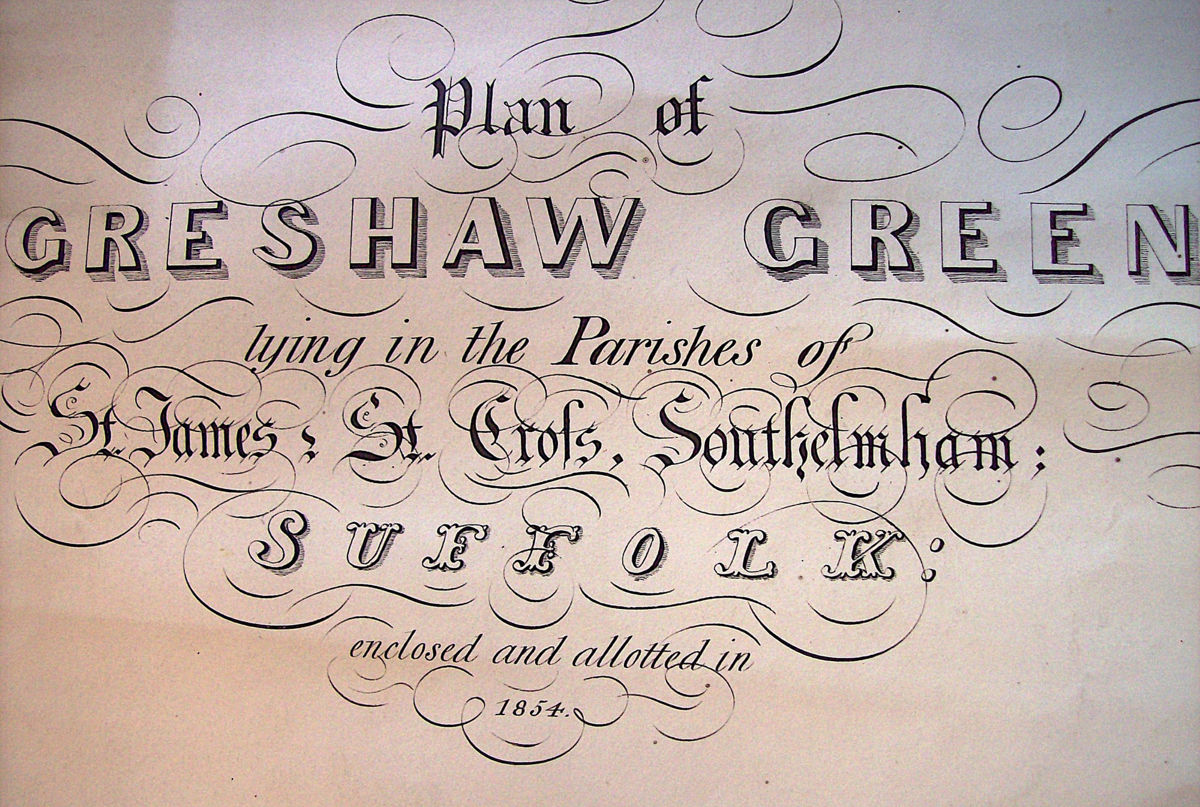 Plan of
GRESHAW GREEN
lying in the Parishes of
St. James; St. Croſs, Southelmham;
SUFFOLK:
enclosed and allotted in
1854.